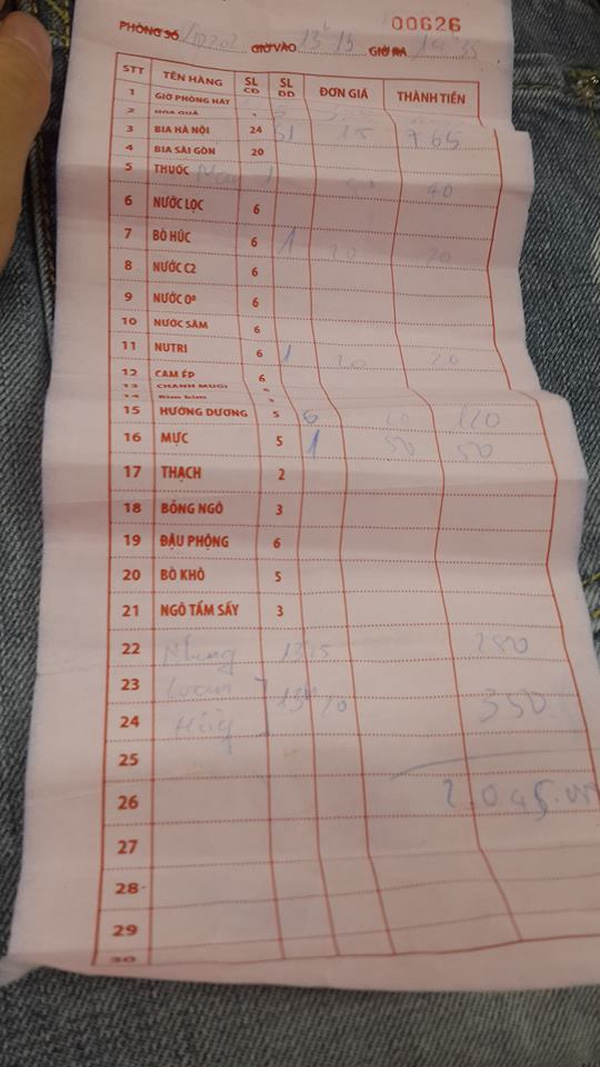 00626
PHÒNG SỐ GIỜ VÀO 13 15 GIỜ RA
STT TÊN HÀNG SL CĐ SL DD ĐƠN GIÁ THÀNH TIỀN
1 GIỜ PHÒNG HÁT
2 HOA QUẢ
3 BIA HÀ NỘI 24 51 15 765
4 BIA SÀI GÒN 20
5 THUỐC 1 40
6 NƯỚC LỌC 6
7 BÒ HÚC 6 1 20 20
8 NƯỚC C2 6
9 NƯỚC 0º 6
10 NƯỚC SÂM 6
11 NUTRI 6 1 20 20
12 CAM ÉP 6
13 CHANH MUỐI
14 Bim bim
15 HƯỚNG DƯƠNG 5 6 120
16 MỰC 5 1 50 50
17 THẠCH 2
18 BỎNG NGÔ 3
19 ĐẬU PHỘNG 6
20 BÒ KHÔ 5
21 NGÔ TẨM SẤY 3
22 Nhung 280
23 Loan 350
24
25
26 2.045
27
28
29
30